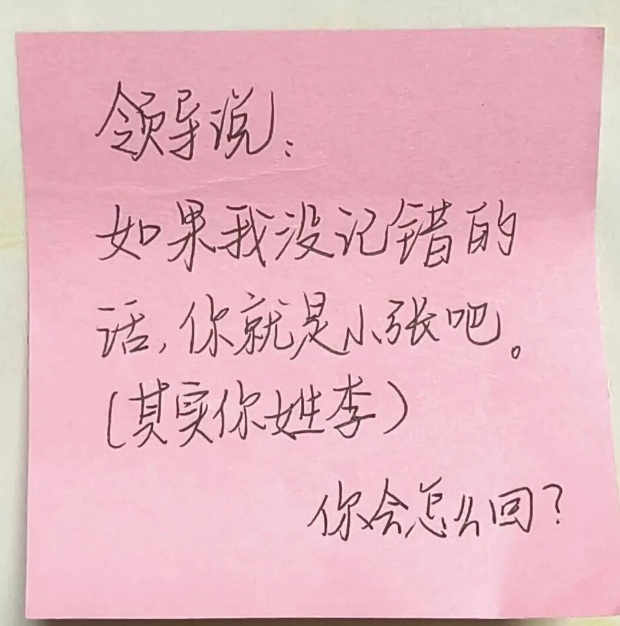 领导说：
如果我没记错的
话，你就是小张吧。
（其实你姓李）
你会怎么回？